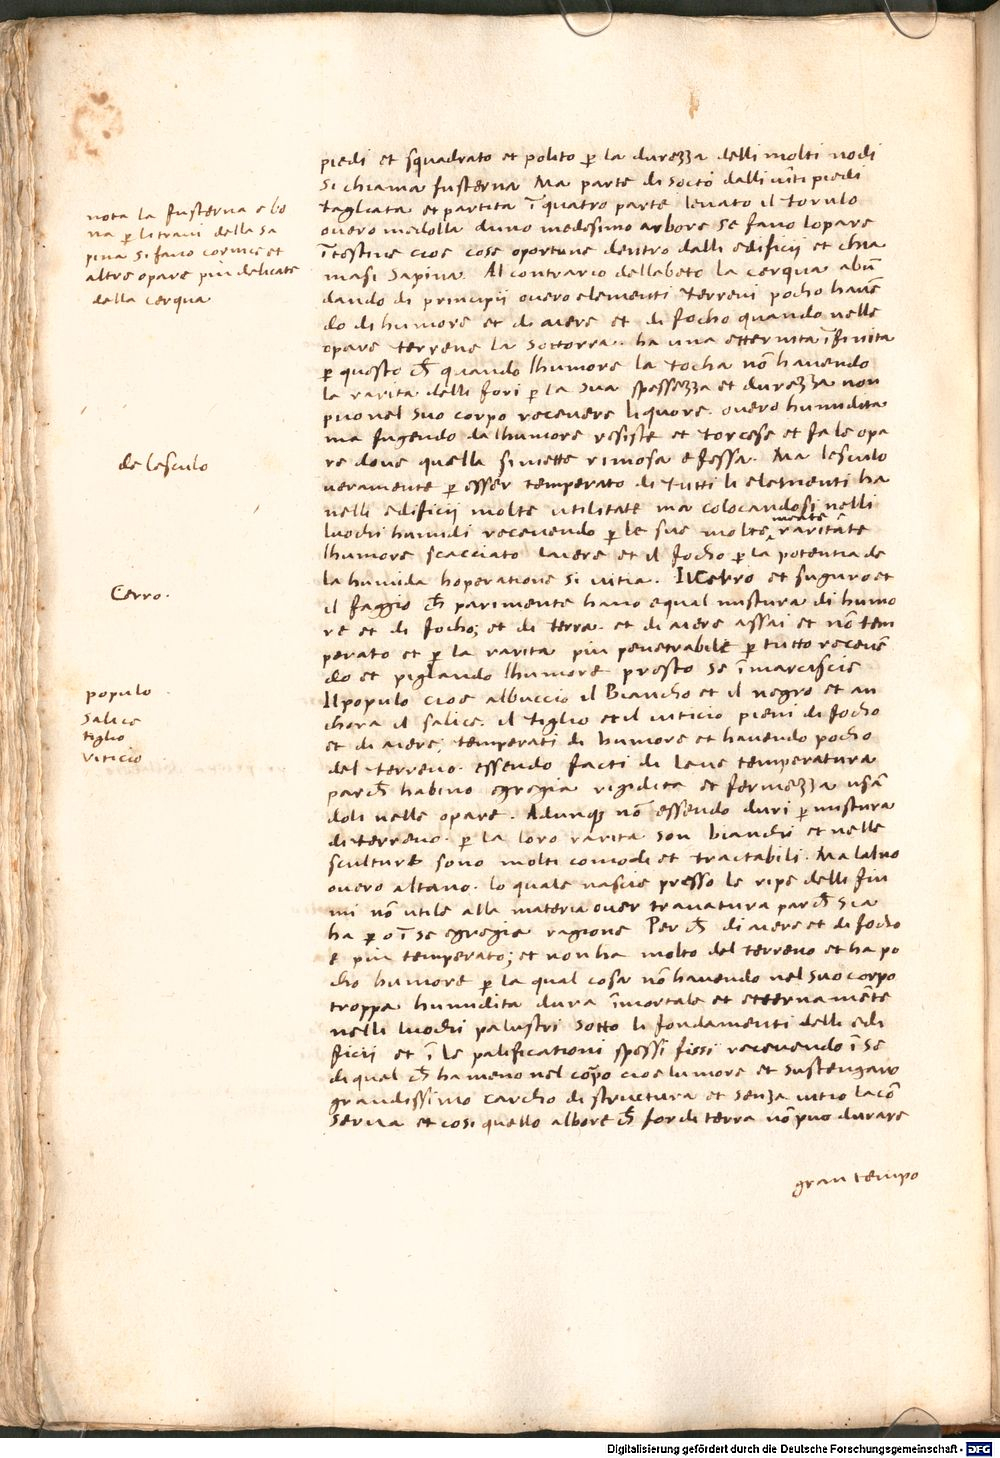 piedi et squadrato et polito p̱ la durezza delli molti nodi
si chiama fusterna Ma parte di socto dalli vīti piedi
tagliata et partita ī quatro parte levato il torulo
overo medolla duno medesimo arbore se fano lopare
ītestine cioe cose oportune dentro dalli edificii et chia
masi Sapina. Al contrario dellabeto la cerqua abū
dando di principii overo elementi terreni pocho havē
do di humore et di aiere et di focho quando nelle
opare terrene la sottorra. ha una etternita īfinita
p̱ questo ch̄ quando lhumore la tocha nō havendo
la rarita delli fori p̱ la sua spessezza et durezza non
puo nel suo corpo recevere liquore. overo humidita
ma fugendo dalhumore resiste et torcese et fa le opa
re dove quella si mette rimosa e fessa. Ma lesculo
veramente p̱ esser temperato di tutti li elementi ha
nelli edificii molte utilitate ma colocandosi nelli
luochi humidi recevendo p̱ le sue molte mente raritāte
lhumore scacciato laiere et il focho p̱ la potentia de
la humida hoperatione si vitia. Il Cerro et sugaro et
il faggio ch̄ parimente hano equal mistura di humo
re et di focho; et di terra. et di aiere assai et nō tem
perato et p̱ la rarita piu penetrabile p̱ tutto recevē
do et pigliando lhumore presto se īmarciscie
Il populo cioe albuccio il Biancho et il negro et an
chora il salice. il tiglio et il viticio pieni di focho
et di aiere; temperati di humore et havendo pocho
del terreno. essendo facti di leve temperatura
parch̄ habino egregia rigidita et fermezza usā
doli nelle opare. Adunque nō essendo duri p̱ mistura
di terreno. p̱ la loro rarita son bianchi et nelle
sculture sono molti comodi et tractabili. Ma lalno
overo altano. lo quale nascie presso le ripe delli fiu
mi nō utile alla materia over travatura parch̄ sia
ha p̱o ī se egregie ragione Per ch̄ di aiere et di focho
e piu temperato; et non ha molto del terreno et ha po
cho humore p̱ la qual cosa nō havendo nel suo corpo
troppa humidita dura īmortale et etternamēte
nelli luochi palustri sotto li fondamenti delli edi
ficii et ī le palificationi spessi fissi recevendo ī se
di quel ch̄ ha meno nel corpo cioe lumore et sustengano
grandissimo carcho di structura et senza vitio la cō
serva et cosi quello albore ch̄ for di terra nō puo durare
gran tempo
nota la fusterna e bo
na p̱ li travi della sa
pina si fano cornice et
altre opare piu delicate
della cerqua
de lesculo
Cerro.
populo
Salice
tiglio
Viticio
Digitalisierung gefördert durch die Deutsche Forschungsgemeinschaft - DFG